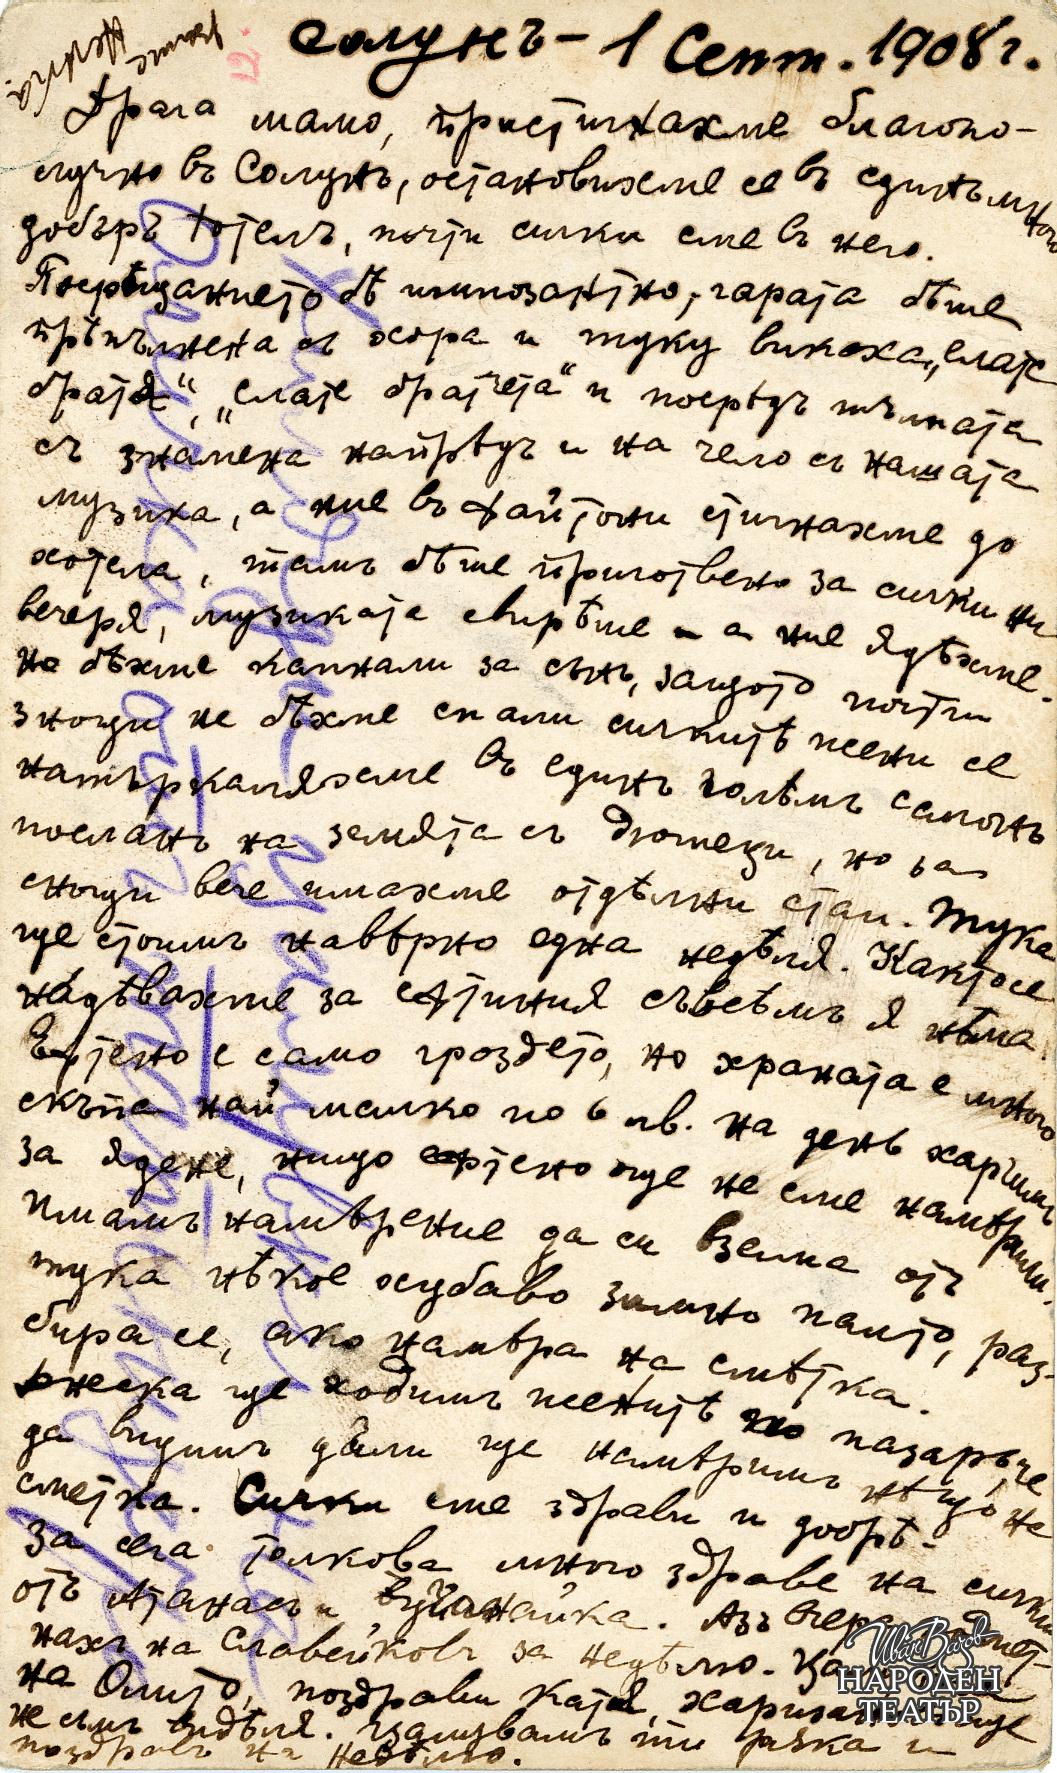 Солунъ - 1 Септ. 1908 г.
Драга мамо, пристигнахме благопо-
лучно въ Солунъ, остановихме се въ единъ много
добъръ хотелъ, почти сички сме в него.
Посрѣщанието бѣ импозантно, гарата бѣше
прѣпълнена съ хора и туку викаха „елате
братя“, „елате братчета“ и посрѣдъ тълпата
съ знамена напрѣдъ и на чело съ нашата
музика, а ние въ файтони стигнахме до
хотела, тамъ бѣше приготвено за сички ни
вечеря, музиката свирѣше а ние ядѣхме.
но бѣхме капнали за сънъ, защото почти
знощи не бѣхме спали сичкитѣ жени се
натъркаляхме въ единъ голѣмъ салонъ
посланъ на земята съ дюшеци, но за
снощи вече имахме отдѣлни стаи. Тука
ще стоимъ навѣрно една недѣля. Както се
надѣвахме за ефтиния съвсѣмъ я нѣма.
Ефтено е само гроздето, но храната е много
скъпа най малко по 6 лв. на день харчимъ
за ядене, нищо ефтено още не сме намѣрили.
Имамъ намѣрение да си взема отъ
тука нѣкое хубаво зимно палто, раз-
бира се, ако намѣра на смѣтка.
Днеска ще ходимъ женитѣ по пазаръ, че
да видимъ дали ще намѣримъ нѣщо на
сметка. Сички сме здрави и добрѣ.
За сега толкова много здраве на сички
отъ Атанасъ и Вълчанайка. Азъ вчера
нахъ на Славейковъ за недѣлю.
на Олито, поздрави Катя,
не съмъ видѣля. Цалувамъ ти рѫка и
поздравъ на Недѣлю.